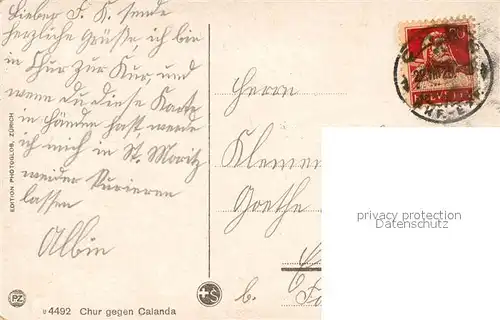 Lieber F. K. sende
herzliche Grüsse, ich bin
in Chur zur Kur, und
wenn du diese Karte
in Händen hast, werde
ich mich in St. Moritz
weider Kurieren
lassen
Albin
EDITION PHOTOGLOB, ZÜRICH
PZ
4492 Chur gegen Calanda
+S
Herrn
Klemen
Goethe
b.
20
HELVETIA
privacy protection
Datenschutz